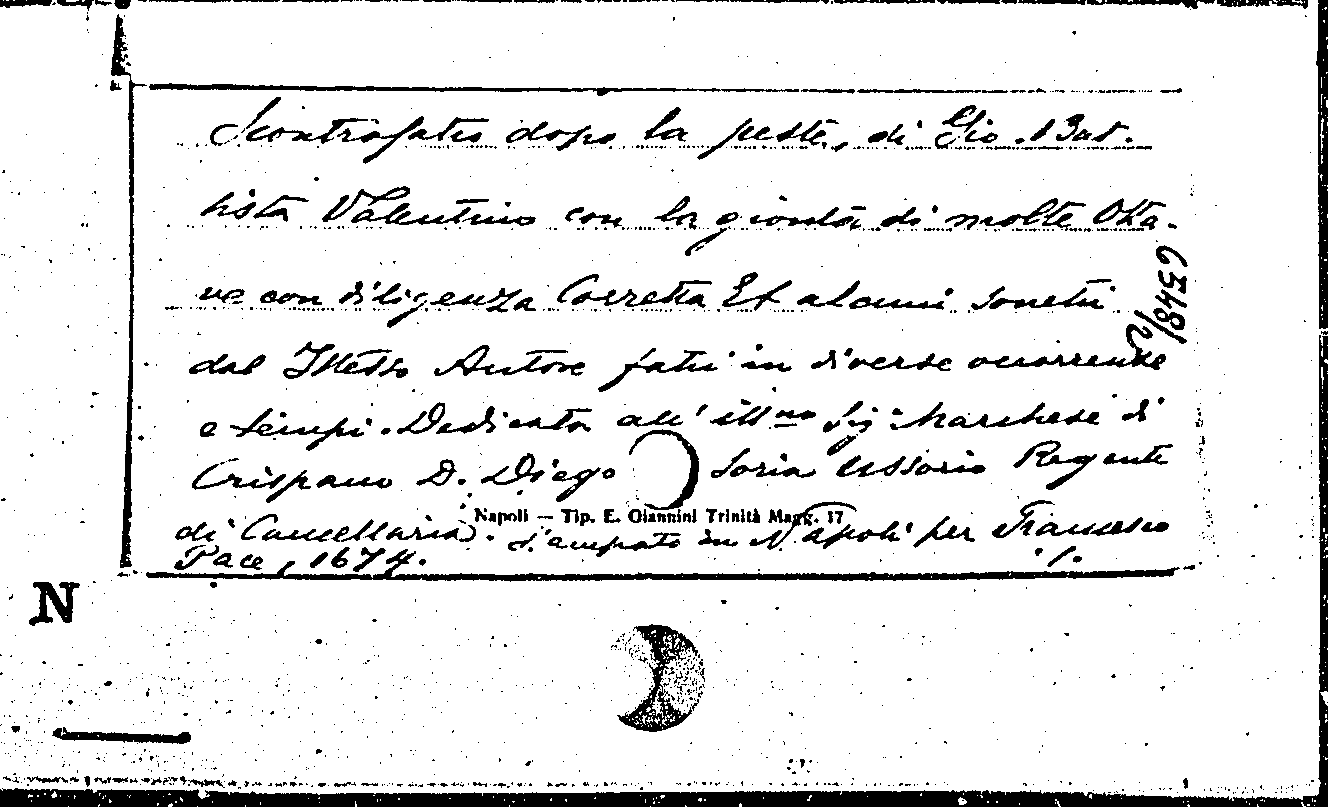 Scontrafatto dopo la peste, di Gio. Bat-
tista Valentino con la gionta di molte Otta-
ve con diligenza Corretta Et alcuni sonetti
dal Istesso Autore fatti in diverse occorrenze
e tempi. Dedicata all' ill.mo Sig: Marchese di
Crispano D. Diego Soria Ussorio Regente
di Cancellaria. Stampato in Napoli per Francesco
Pace, 1674. ./.
Napoli — Tip. E. Giannini Trinità Magg. 17
N